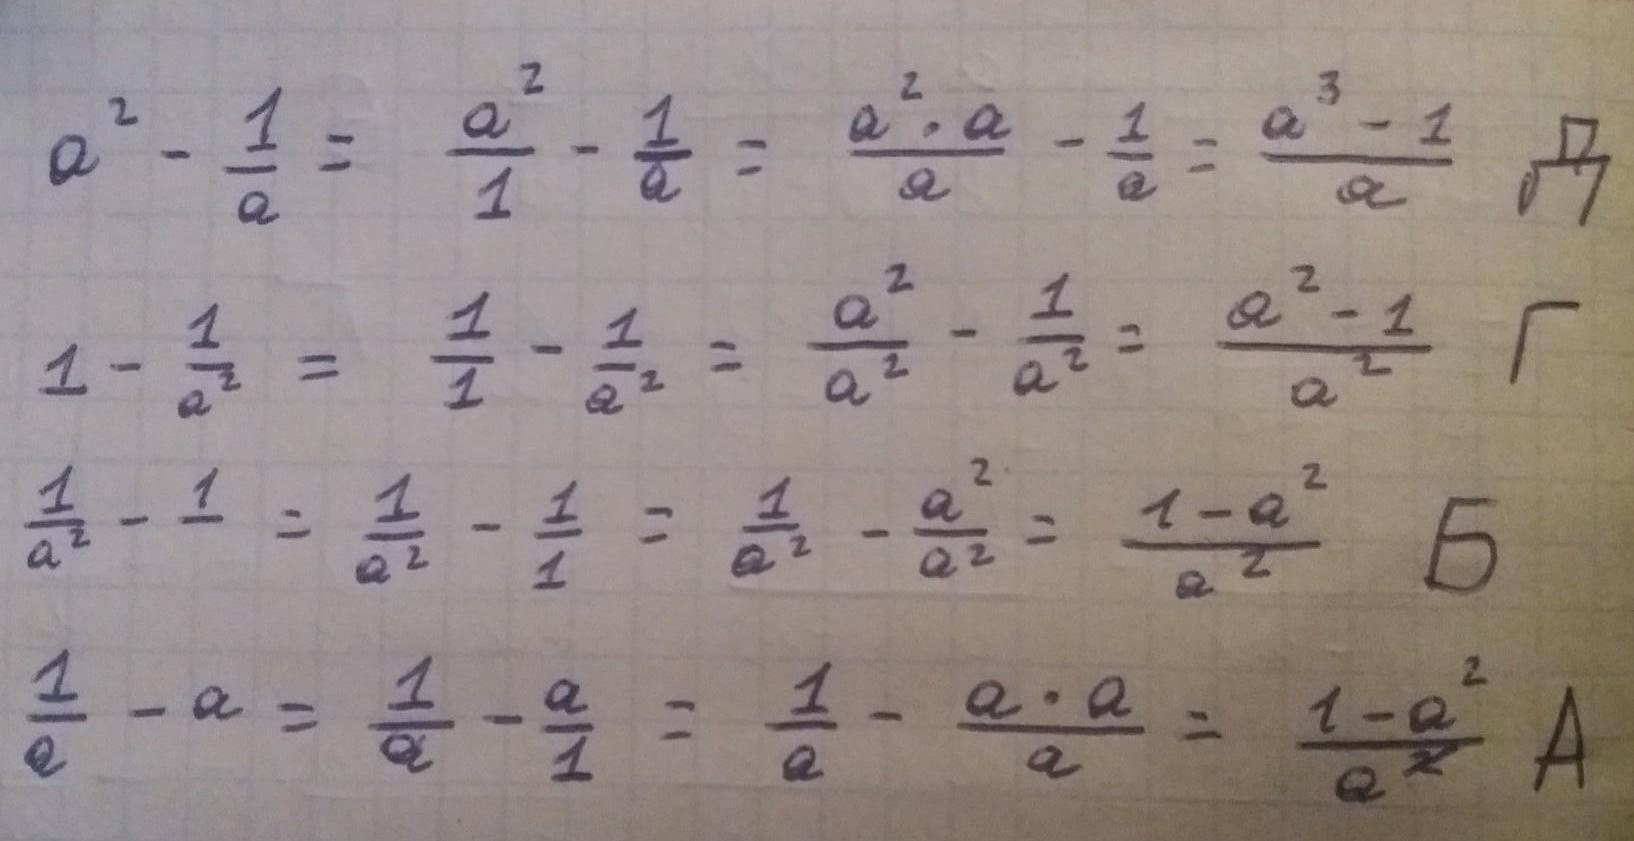 a² - 1/a = a²/1 - 1/a = a²·a/a - 1/a = a³-1/a Д
1 - 1/a² = 1/1 - 1/a² = a²/a² - 1/a² = a²-1/a² Г
1/a² - 1 = 1/a² - 1/1 = 1/a² - a²/a² = 1-a²/a² Б
1/a - a = 1/a - a/1 = 1/a - a·a/a = 1-a²/a А